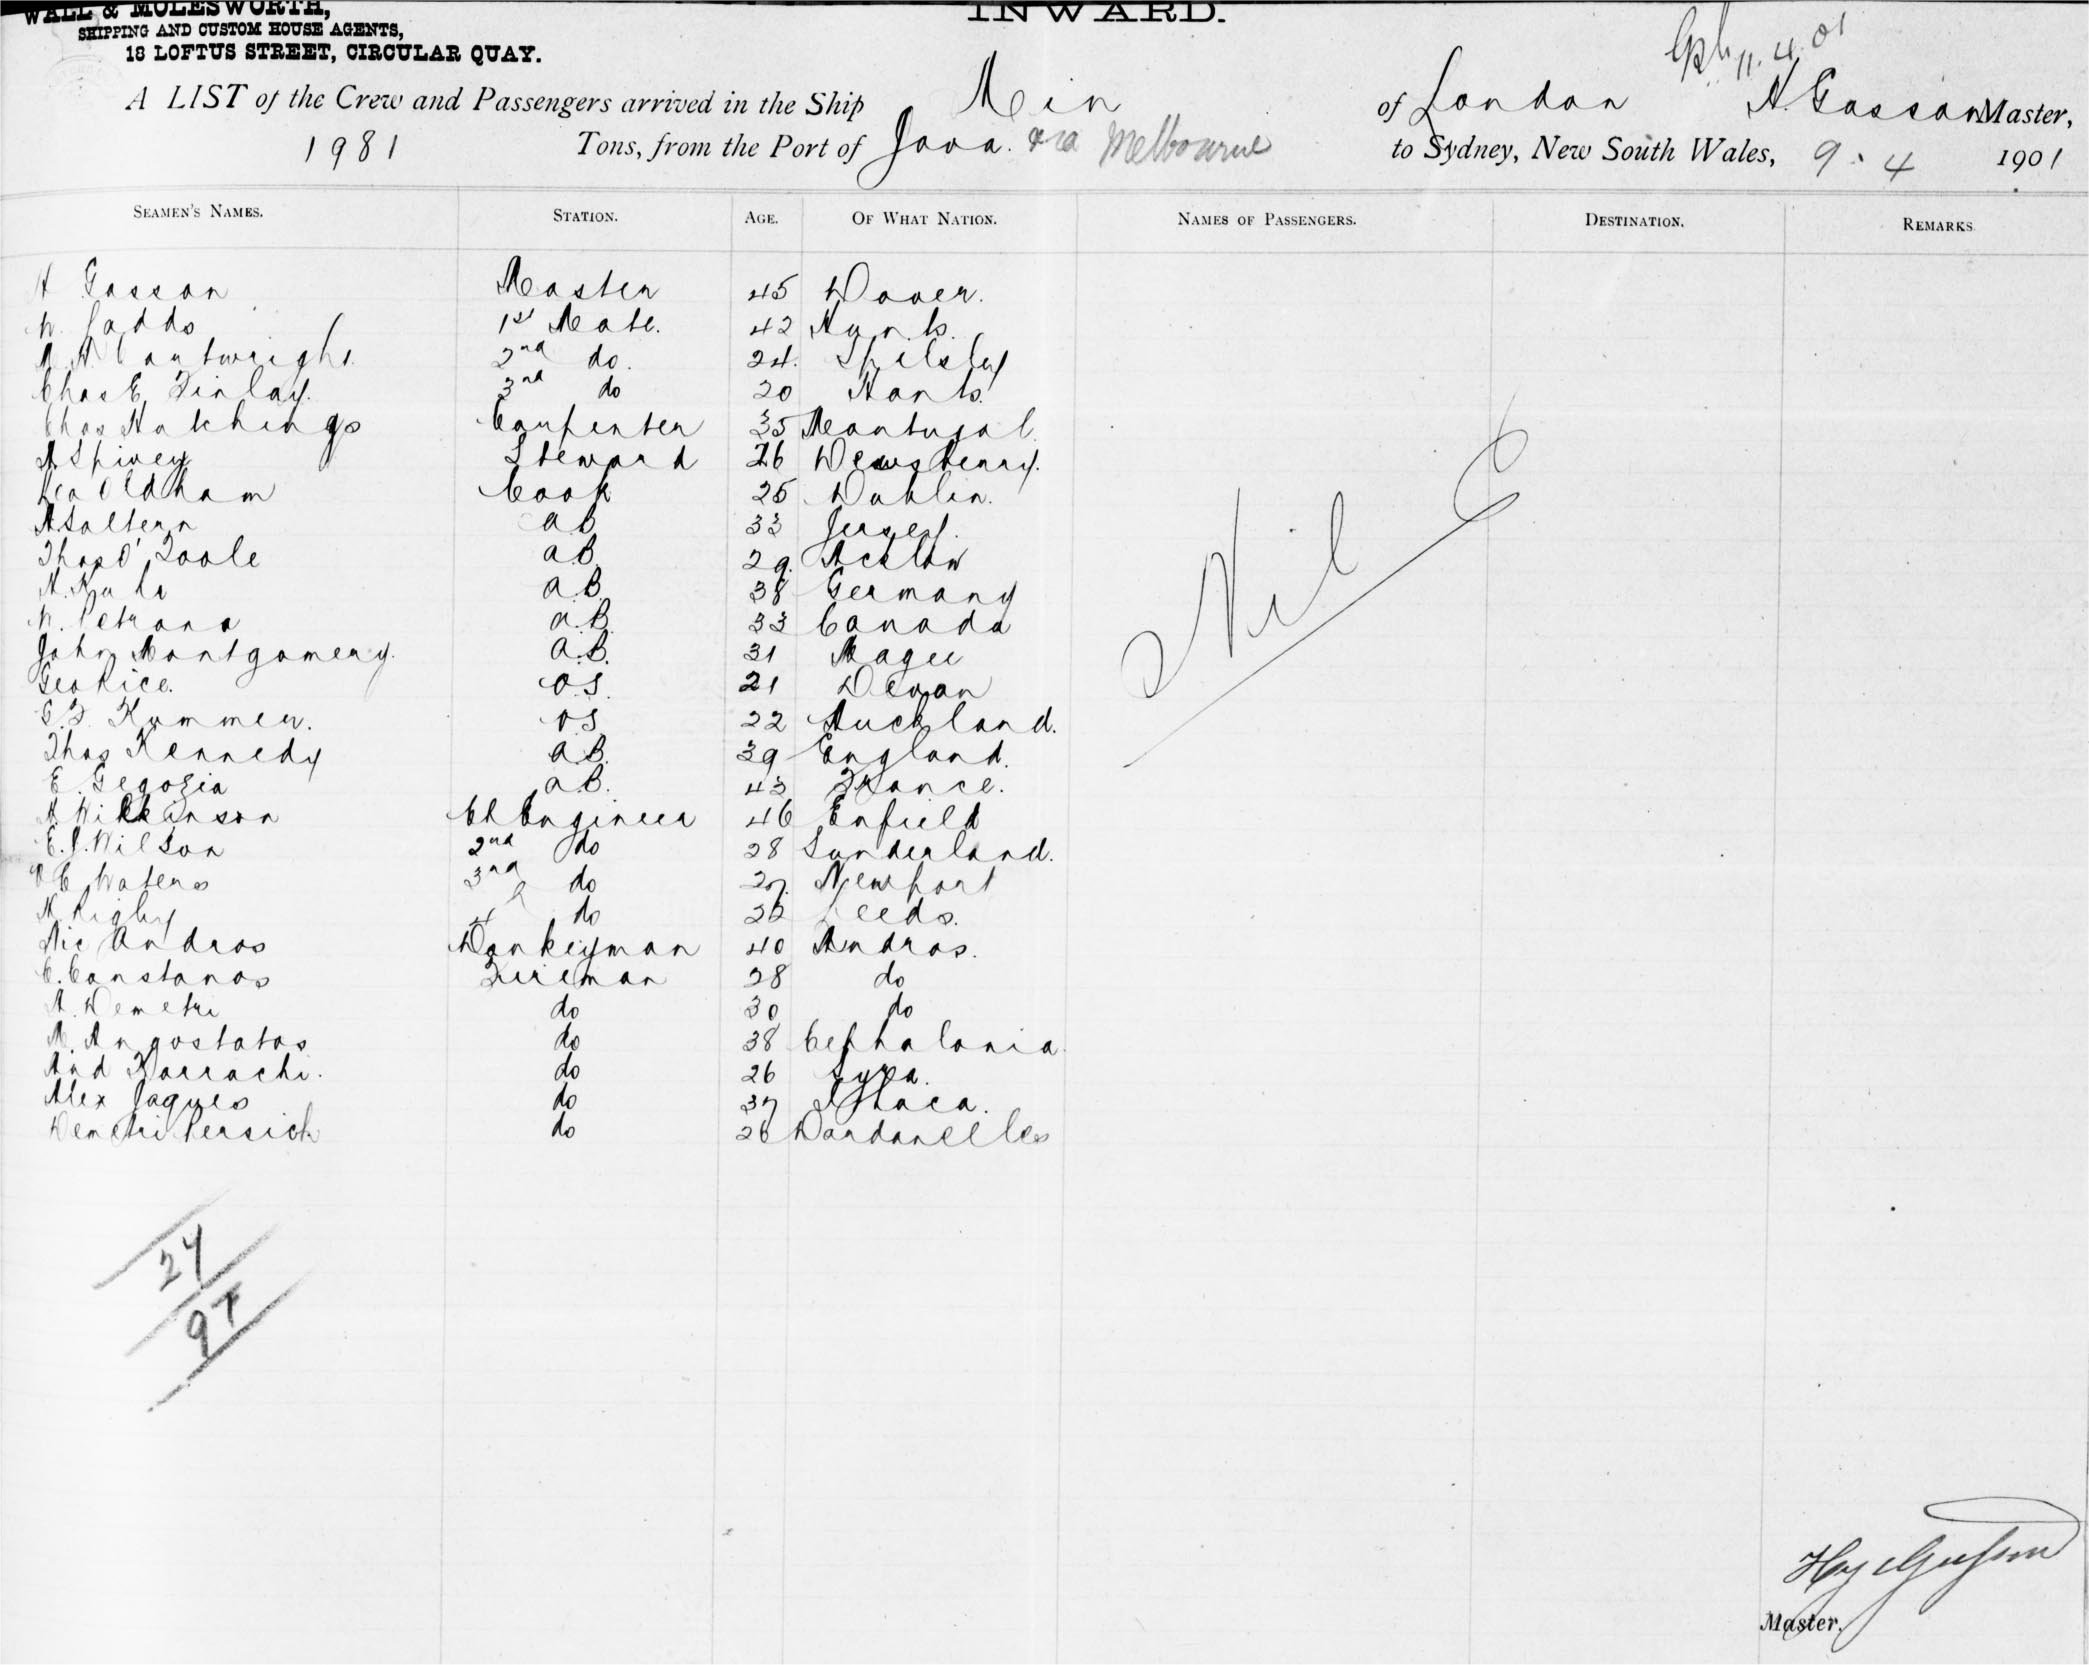 WALL & MOLESWORTH,
SHIPPING AND CUSTOM HOUSE AGENTS,
18 LOFTUS STREET, CIRCULAR QUAY.
INWARD.
11.4.01
A LIST of the Crew and Passengers arrived in the Ship Mein of London H. Gasson Master,
1981 Tons, from the Port of Java. via Melbourne to Sydney, New South Wales, 9.4 1901
SEAMEN'S NAMES. STATION. AGE. OF WHAT NATION. NAMES OF PASSENGERS. DESTINATION. REMARKS.
H Gasson Master 45 Dover.
W. Jadds 1st Mate. 42 Hunts.
Cartwright 2nd do. 24. Spilsby
Chas E. Finlay. 3rd do 20 Hants.
Chas Hutchings Carpenter 35 Montugal
A Spivey Steward 26 Dewsberry.
Leo Oldham Cook 25 Dublin.
A Saltern a.B. 33 Jersey.
Thos O'Toole a.B. 29. Acklow
a.B. 38 Germany
W. Petrana a.B. 33 Canada
John Montgomery. a.B. 31 Magee
Geo Rice. O.S. 21 Devon
C. F. Kummer. OS 22 Auckland.
Thos Kennedy a.B. 39 England.
E. Gegozia a.B. 43 France.
A. Wilkinson Ch Engineer 46 Enfield
E. J. Wilson 2nd do 28 Sunderland.
C Waters 3rd do 27. Newport
H Rigby 4 do 22 Leeds.
Nic Andros Donkeyman 40 Andros.
C. Constanos Fireman 28 do
A. Demetri do 30 do
M. Angostatos do 38 Cephalonia
And Karrachi. do 26 Syra.
Alex Jaques do 37 Ithaca.
Demetri Persich do 26 Dardanelles
Nil
27
97
Hy Gasson
Master.